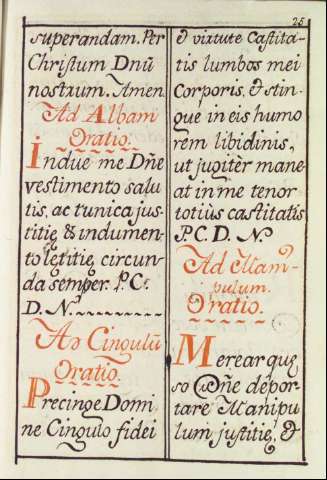 25
superandam. Per
Christum Dnũ
nostrum. Amen
Ad Albam
Oratio.
Indue me Dñe
vestimento salu
tis, ac tunica jus-
titię & indumen-
to lętitię circun-
da semper. P. C.
D. N.
Ad Cingulũ
Oratio.
Precinge Domi
ne Cingulo fidei
& virtute Castita-
tis lumbos mei
Corporis, & stin-
gue in eis humo
rem libidinis,
ut jugitèr mane-
at in me tenor
totiùs castitatis
P. C. D. N.
Ad Mani-
pulum.
Oratio.
Merear quę
so Dñe depor-
tare Manipu
lum justitię, &